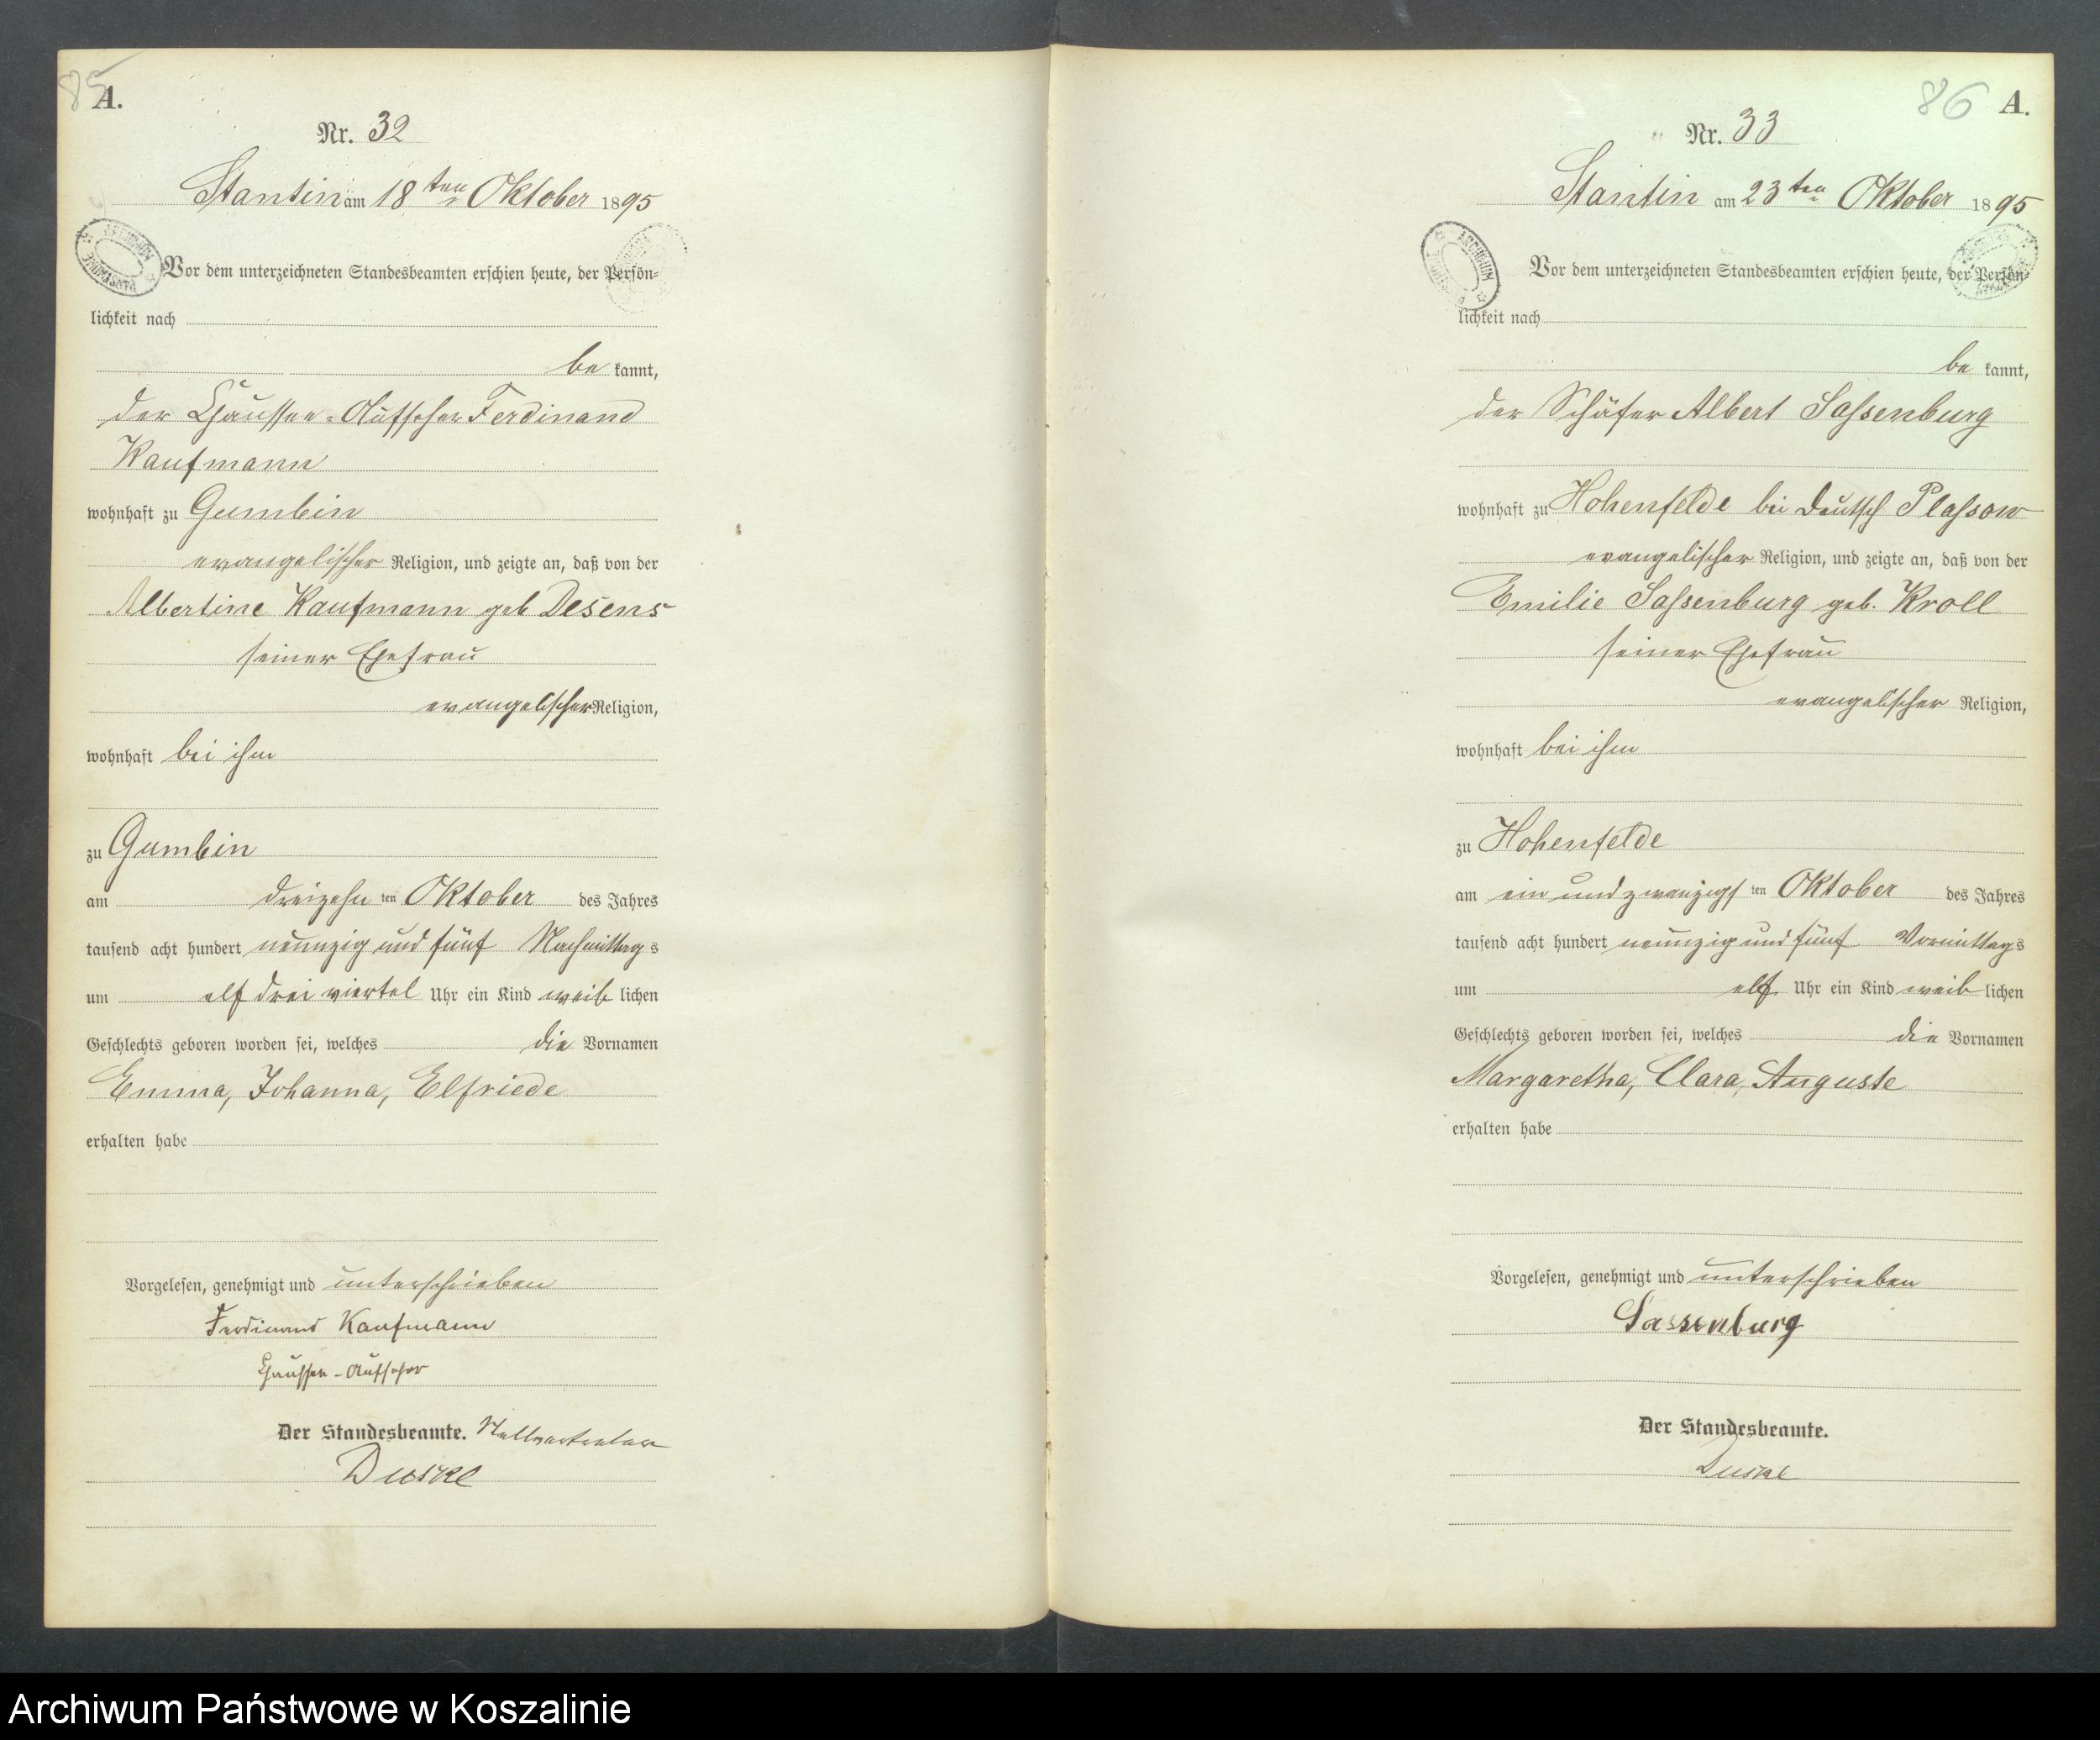 85
A.
Nr. 32
Stantin am 18ten Oktober 1895
ARCHIWUM
PAŃSTWOWE
Vor dem unterzeichneten Standesbeamten erschien heute, der Persön=
lichkeit nach
be kannt,
der Chaussee-Aufseher Ferdinand
Kaufmann
wohnhaft zu Gumbin
evangelischer Religion, und zeigte an, daß von der
Albertine Kaufmann geb Desens
seiner Ehefrau
evangelischer Religion,
wohnhaft bei ihm
zu Gumbin
am dreizehn ten Oktober des Jahres
tausend acht hundert neunzig und fünf Nachmittag s
um elf drei viertel Uhr ein Kind weib lichen
Geschlechts geboren worden sei, welches die Vornamen
Emma, Johanna, Elfriede
erhalten habe
Vorgelesen, genehmigt und unterschrieben
Ferdinand Kaufmann
Chaussee-Aufseher
Der Standesbeamte. Stellvertreter
Duske
86
A.
Nr. 33
Stantin am 23ten Oktober 1895
ARCHIWUM
Vor dem unterzeichneten Standesbeamten erschien heute, der Persön=
lichkeit nach
be kannt,
der Schäfer Albert Sassenburg
wohnhaft zu Hohenfelde bei Deutsch Plassow
evangelischer Religion, und zeigte an, daß von der
Emilie Sassenburg geb. Kroll
seiner Ehefrau
evangelischer Religion,
wohnhaft bei ihm
zu Hohenfelde
am ein und zwanzigs ten Oktober des Jahres
tausend acht hundert neunzig und fünf Vormittag s
um elf Uhr ein Kind weib lichen
Geschlechts geboren worden sei, welches die Vornamen
Margaretha, Clara, Auguste
erhalten habe
Vorgelesen, genehmigt und unterschrieben
Sassenburg
Der Standesbeamte.
Duske
Archiwum Państwowe w Koszalinie